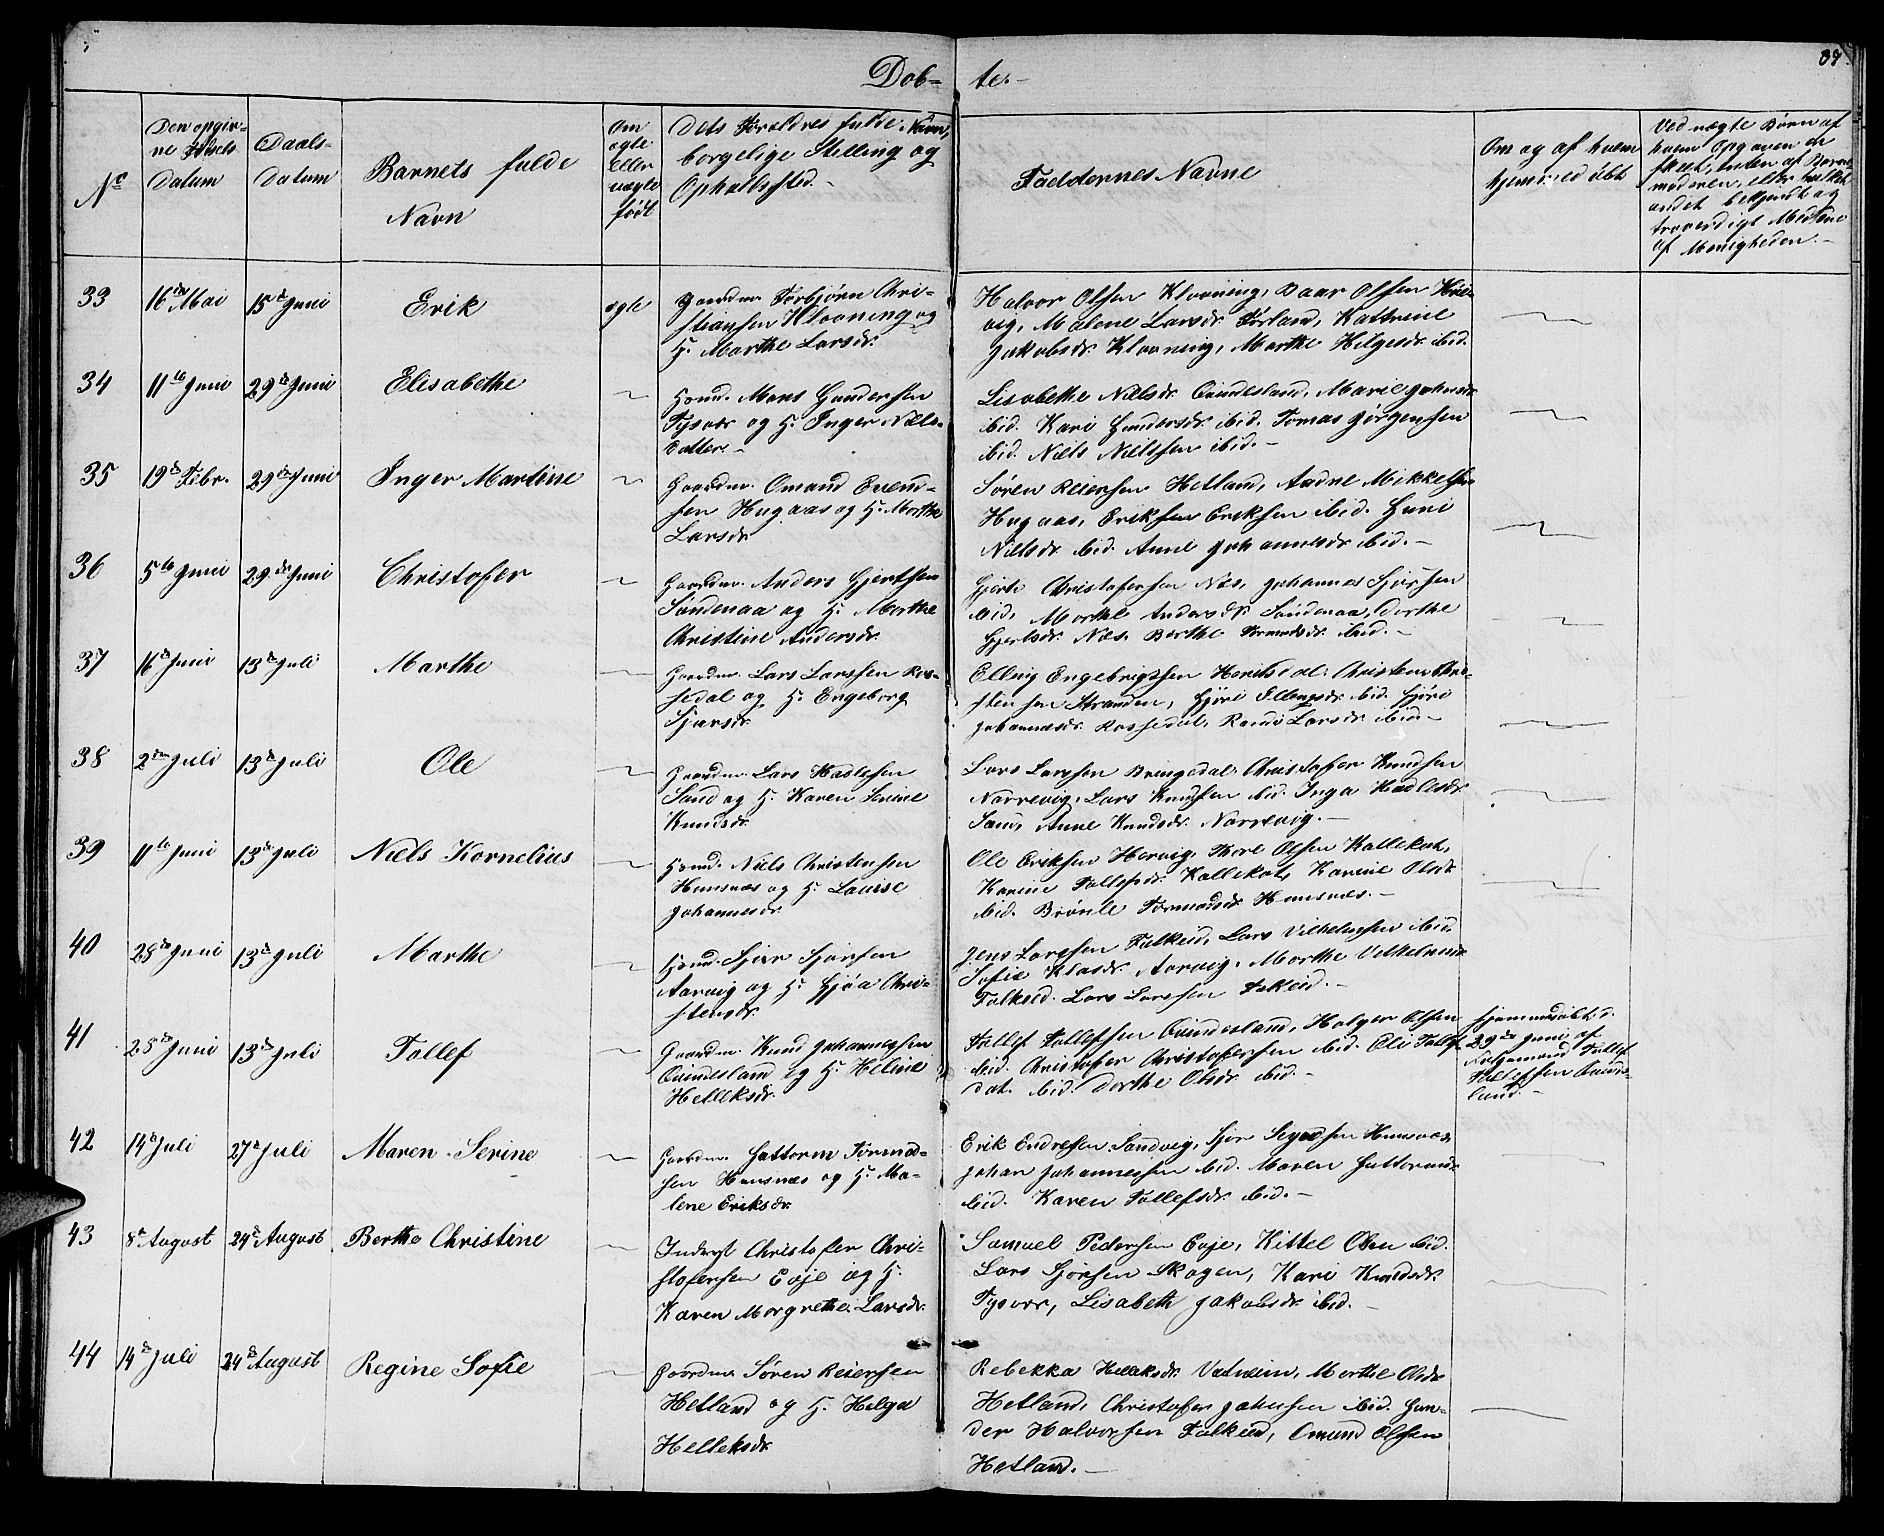 Døb=te.-
Nº
Den opgiv=
ne Fødsels
Datum
Daabs-
Datum
Barnets fulde
Navn
Om
ægte
eller
uægte
født
Dets Foreldres fulde Navn,
borgelige Stelling og
Opholdssted.-
Faddernes Navne
Om og af hvem
hjemmedøbt
Ved uægte Børn af
hvem Opgaven er
skeet, enten af Barne
moderen, eller
andet bekjendt og
troverdigt Medlem
af Menigheden.-
33
16de Mai
15de Juni
Erik
egte
Gaardm. Torbjørn Chri-
stiansen Klovning og
H. Marthe Larsdr.
Halvor Olsen Klovning, Baar Olsen
vig, Malene Larsdr. Førland, Kattrine
Jakobsdr. Klovning, Marthe Helgesdr. ibid.
34
11te Juni
29de Juni
Elisabethe
Huusm. Mons Gundersen
Tysvær og H. Inger Niels-
datter.-
Lisabethe Nielsdr. Qvindesland, Marie Johnsdr.
ibid. Kari Gundersdr. ibid. Tomas Jørgensen
ibid. Niels Nielsen ibid.-
35
19de Febr.
29de Juni
Inger Martine
Gaardm. Omund Evend-
sen Hugaas og H. Marthe
Larsdr.
Søren Reiersen Hetland, Aadne Mikkelsen
Hugaas, Eriksen ibid. Guri
Nielsdr. ibid. Anne Johannesdr. ibid.-
36
5te Juni
29de Juni
Christofer
Gaardm. Anders Gjertsen
Søndenaa og H. Marthe
Christine Andersdr.
Gjert Christofersen Næs, Johannes Sjørsen
ibid. Marthe Andersdr. Søndenaa, Dorthe
Gjertsdr. Næs. Berthe Tormodsdr. ibid.-
37
16de Juni
13de Juli
Marthe
Gaardm. Lars Larssen Ros-
sedal og H. Engeborg
Sjursdr.
Elling Engebrigtsen Christen Chri-
stensen Stranden, Gjøri Ellingsdr. ibid. Gjøri
Johannesdr. Rossedal, Randi Larsdr. ibid.-
38
2den Juli
13de Juli
Ole
Gaardm. Lars Hadlesen
Sand og H. Karen Serine
Knudsdr.
Lars Larssen Bringedal, Christofer Knudsen
Narrevig, Lars Knudsen ibid. Inga Hadlesdr.
Sand, Anne Knudsdr. Narrevig.-
39
11te Juni
13de Juli
Niels Kornelius
Huusm. Niels Christensen
Hamsnæs og H. Lauise
Johannesdr.
Ole Eriksen Hervig, Thore Olsen Kallekot,
Karine Tollefsdr. Kallekot, Karine Olsdr.
ibid. Brønle Tormodsdr. Hamsnæs.-
40
28de Juni
13de Juli
Marthe
Huusm. Sjur Sjørsen
Aarvig og H. Gjøa Chri-
stensdr.
Jens Larssen Falkeid, Lars Vilhelmsen ibid.
Sofie Klasdr. Aarvig, Marthe Vilhelmsdr.
Falkeid. Lars Larssen Falkeid.-
41
28de Juni
13de Juli
Tollef
Gaardm. Knud Johannessen
Qvindesland og H. Heline
Helleksdr.
Tollef Tollefsen Qvindesland, Holger Olsen
ibid. Christofer Christofersen ibid. Oli Tollef
dat. ibid. Dorthe Olsdr. ibid.-
Hjemmedøbt d.
29de Juni af
Tollef
Tollefsen Qvindes-
land.-
42
14de Juli
27de Juli
Maren Serine
Gaardm. Guttorm Tormod-
sen Hamsnæs og H. Ma-
lene Eriksdr.
Erik Endresen Sandvig, Sjur Hamsnæs
Johan Johannessen ibid. Maren Guttormsdr.
ibid. Karen Tollefsdr. ibid.-
43
8de August
24de August
Berthe Christine
Inderst Christofer Chri-
stofersen Eøje og H.
Karen Margrethe Larsdr.
Samuel Pedersen Eøje, Kittel Olsen ibid.
Lars Sjørsen Skogen, Kari Knudsdr.
Tysvær, Lisabeth Jakobsdr. ibid.-
44
14de Juli
24de August
Regine Sofie
Gaardm. Søren Reiersen
Hetland og H. Helga
Helleksdr.
Rebekka Helleksdr. Vatneim, Marthe Olsdr.
Hetland, Christofer Johnsen ibid. Gun-
der Halvorsen Falkeid, Omund Olsen
Hetland.-